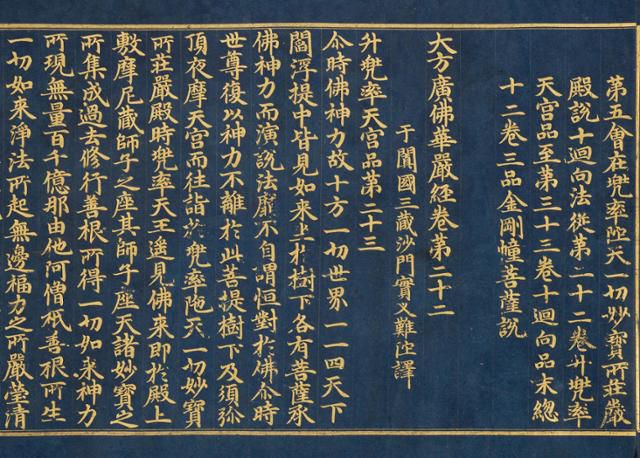 第五會在兜率陁天一切妙寶所莊嚴
殿說十迴向法從第二十二卷升兜率
天宮品至第三十三卷十迴向品末總
十二卷三品金剛幢菩薩說
大方廣佛華嚴經卷第二十二
于闐國三藏沙門實叉難陁譯
升兜率天宮品第二十三
尒時佛神力故十方一切世界一一四天下
閻浮提中皆見如來坐於樹下各有菩薩承
佛神力而演說法靡不自謂恒對於佛尒時
世尊復以神力不離於此菩提樹下及須弥
頂夜摩天宮而往詣於兜率陁天一切妙寶
所莊嚴殿時兜率天王遥見佛來即於殿上
敷摩尼藏師子之座其師子座天諸妙寶之
所集成過去修行善根所得一切如來神力
所現無量百千億那由他阿僧祇善根所生
一切如來淨法所起無邊福力之所嚴瑩清